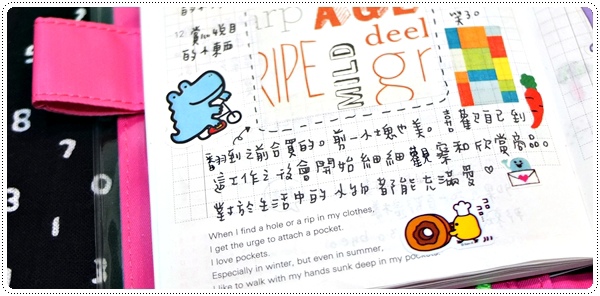 12. 賞心悅目
的小東西
arp AGE
RIPE
MILD
deel
gr
翻到之前合買的。剪一小塊也美。喜歡自己到
這工作之後會開始細細觀察和欣賞商品。
對於生活中的小物都能充滿愛♡
ココロ
When I find a hole or a rip in my clothes,
I get the urge to attach a pocket.
I love pockets.
Especially in winter, but even in summer,
I like to walk with my hands sunk deep in my
3
8
7
9
8